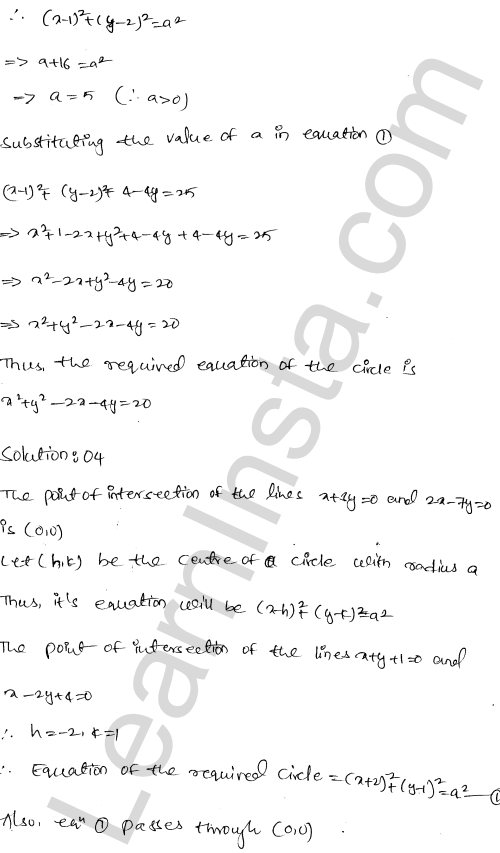 ∴ (x-1)²+(y-2)²=a²
=> a+16=a²
=> a=5 (∵ a>0)
Substituting the value of a in equation ①
(x-1)²+ (y-2)²+ 4-4y=25
=> x²+1-2x+y²+4-4y+4-4y=25
=> x²-2x+y²-4y=20
=> x²+y²-2x-4y=20
Thus, the required equation of the circle is
x²+y²-2x-4y=20
Solution:04
The point of intersection of the lines x+2y=0 and 2x-7y=0
is (0,0)
Let (h,k) be the centre of a circle with radius a
Thus, it's equation will be (x-h)²+(y-k)²=a²
The point of intersection of the lines x+y+1=0 and
x-2y+4=0
∴ h=-2, k=1
∴ Equation of the required circle =(x+2)²+(y-1)²=a² — ①
Also, eqⁿ ① passes through (0,0) .
LearnInsta.com